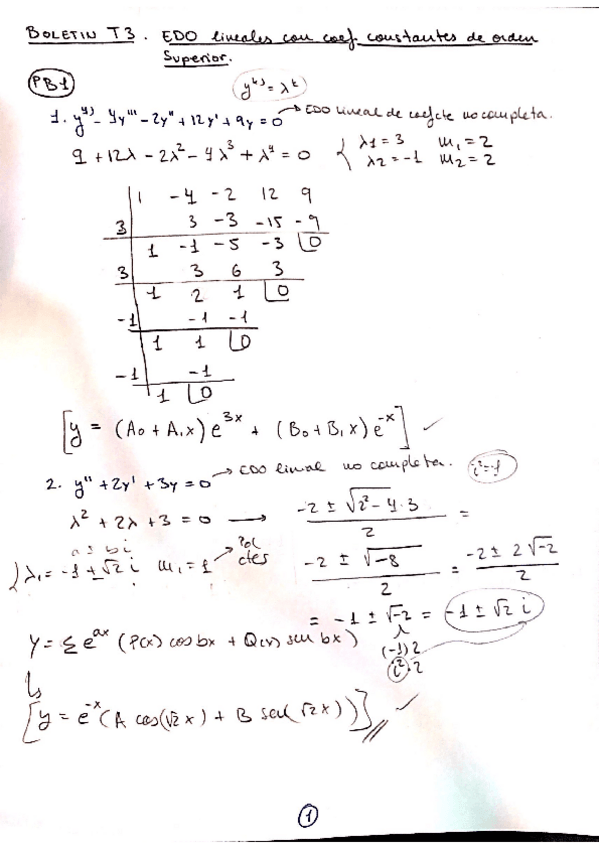 BOLETIN T3. EDO lineales con coef. constantes de orden
Superior.
PB1
y^(k) = λ^k
1. y^(4) - 4y''' - 2y'' + 12y' + 9y = 0 → EDO lineal de coefcte no completa.
9 + 12λ - 2λ² - 4λ³ + λ⁴ = 0 { λ1 = 3 m₁ = 2
λ2 = -1 m₂ = 2
1 -4 -2 12 9
3 3 -3 -15 -9
1 -1 -5 -3 0
3 3 6 3
1 2 1 0
-1 -1 -1
1 1 0
-1 -1
1 0
[y = (A₀ + A₁x) e^{3x} + (B₀ + B₁x) e^{-x}] ✓
2. y'' + 2y' + 3y = 0 → EDO lineal no completa. i² = -1
λ² + 2λ + 3 = 0 → (-2 ± √(2² - 4·3)) / 2 =
a ± bi
λ₁ = -1 ± √2 i m₁ = 1 → Pol ctes
(-2 ± √-8) / 2 = (-2 ± 2√-2) / 2
= -1 ± √-2 = -1 ± √2 i
(-1)2
i²·2
y = Σ e^{ax} (P(x) cos bx + Q(x) sen bx)
[y = e^{-x} (A cos(√2 x) + B sen(√2 x))] ✓
1